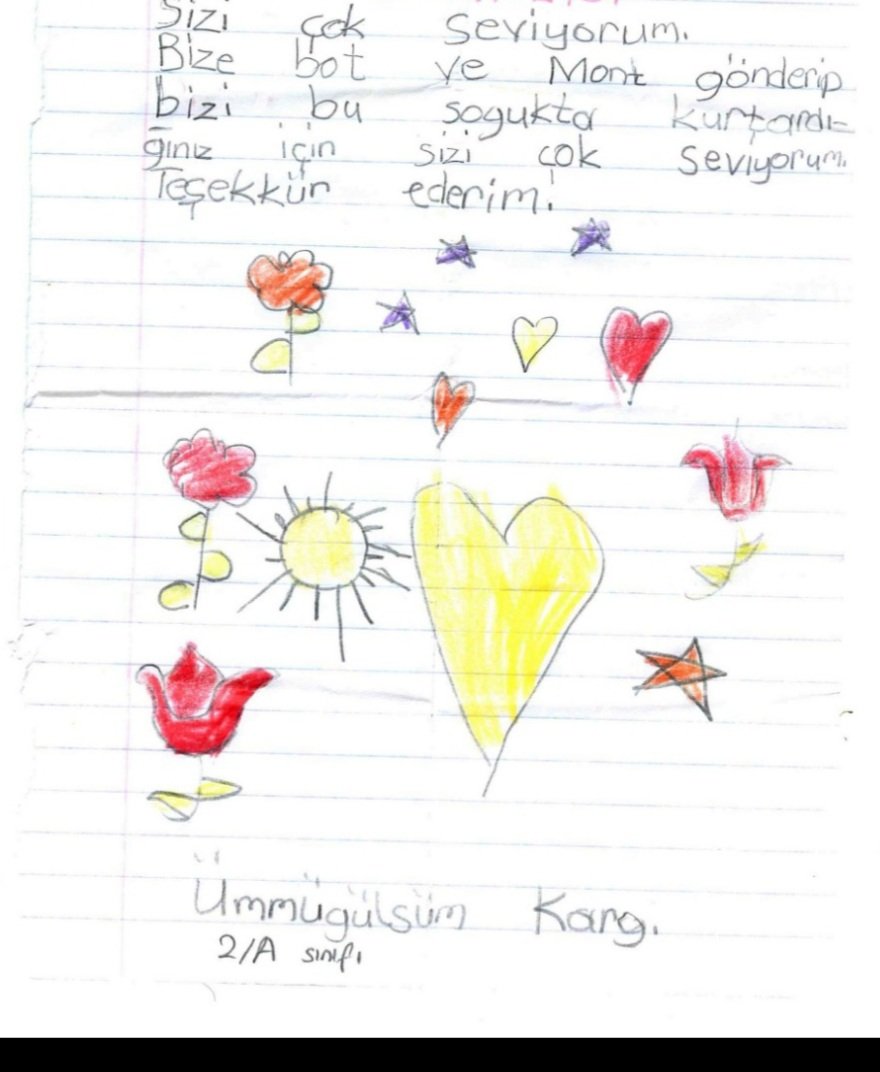 Sizi çok seviyorum.
Bize bot ve Mont gönderip
bizi bu sogukta kurtardı-
ğınız için sizi çok seviyorum.
Teşekkür ederim.
Ümmügülsüm Karg.
2/A sınıfı